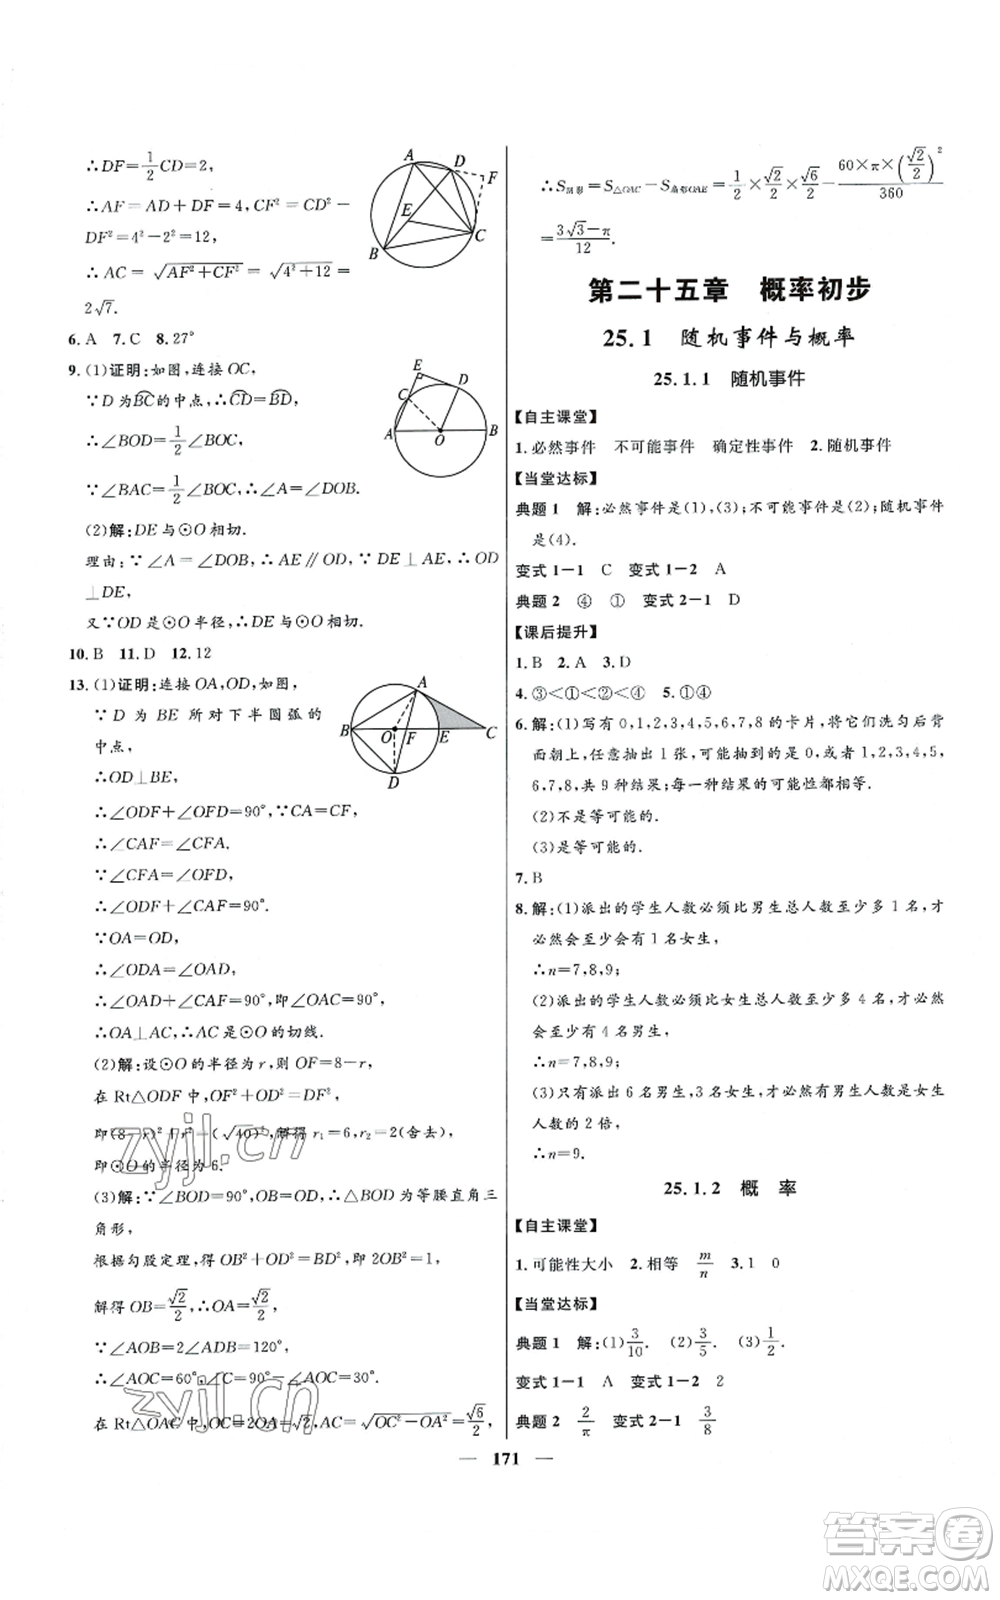 ∴DF=1/2CD=2,
∴AF=AD+DF=4,CF²=CD²-
DF²=4²-2²=12,
∴AC=√(AF²+CF²)=√(4²+12)=
2√7.
6.A 7.C 8.27°
9.(1)证明:如图,连接OC,
∵D为B͡C的中点,∴C͡D=B͡D,
∴∠BOD=1/2∠BOC,
∵∠BAC=1/2∠BOC,∴∠A=∠DOB.
(2)解:DE与⊙O相切.
理由:∵∠A=∠DOB,∴AE∥OD,∵DE⊥AE,∴OD
⊥DE,
又∵OD是⊙O半径,∴DE与⊙O相切.
10.B 11.D 12.12
13.(1)证明:连接OA,OD,如图,
∵D为BE所对下半圆弧的
中点,
∴OD⊥BE,
∴∠ODF+∠OFD=90°,∵CA=CF,
∴∠CAF=∠CFA.
∵∠CFA=∠OFD,
∴∠ODF+∠CAF=90°.
∵OA=OD,
∴∠ODA=∠OAD,
∴∠OAD+∠CAF=90°,即∠OAC=90°,
∴OA⊥AC,∴AC是⊙O的切线.
(2)解:设⊙O的半径为r,则OF=8-r,
在Rt△ODF中,OF²+OD²=DF²,
即(8-r)²+r²=(√40)²,解得r₁=6,r₂=2(舍去),
即⊙O的半径为6.
(3)解:∵∠BOD=90°,∴△BOD为等腰直角三
角形,
根据勾股定理,得OB²+OD²=BD²,即2OB²=1,
解得OB=√2/2,∴OA=√2/2,
∵∠AOB=2∠ADB=120°,
∴∠AOC=60°,∠C=90°-∠AOC=30°.
在Rt△OAC中,OC=2OA=√2,AC=√(OC²-OA²)=√6/2,
A
D
F
E
B
C
E
D
C
A
O
B
A
B
O
F
E
C
D
∴S阴影=S△OAC-S扇形OAE=1/2×√2/2×√6/2-(60×π×(√2/2)²)/360
=(3√3-π)/12.
第二十五章 概率初步
25.1 随机事件与概率
25.1.1 随机事件
【自主课堂】
1.必然事件 不可能事件 确定性事件 2.随机事件
【当堂达标】
典题1 解:必然事件是(1),(3);不可能事件是(2);随机事件
是(4).
变式1-1 C 变式1-2 A
典题2 ④ ① 变式2-1 D
【课后提升】
1.B 2.A 3.D
4.③<①<②<④ 5.①④
6.解:(1)写有0,1,2,3,4,5,6,7,8的卡片,将它们洗匀后背
面朝上,任意抽出1张,可能抽到的是0,或者1,2,3,4,5,
6,7,8,共9种结果;每一种结果的可能性都相等.
(2)不是等可能的.
(3)是等可能的.
7.B
8.解:(1)派出的学生人数必须比男生总人数至少多1名,才
必然会至少会有1名女生,
∴n=7,8,9;
(2)派出的学生人数必须比女生总人数至少多4名,才必然
会至少会有4名男生,
∴n=7,8,9;
(3)只有派出6名男生,3名女生,才必然有男生人数是女生
人数的2倍,
∴n=9.
25.1.2 概 率
【自主课堂】
1.可能性大小 2.相等 m/n 3.1 0
【当堂达标】
典题1 解:(1)3/10. (2)3/5. (3)1/2.
变式1-1 A 变式1-2 2
典题2 2/π 变式2-1 3/8
— 171 —
zyjl.cn
zyjl.cn
答案卷
MXQE.COM